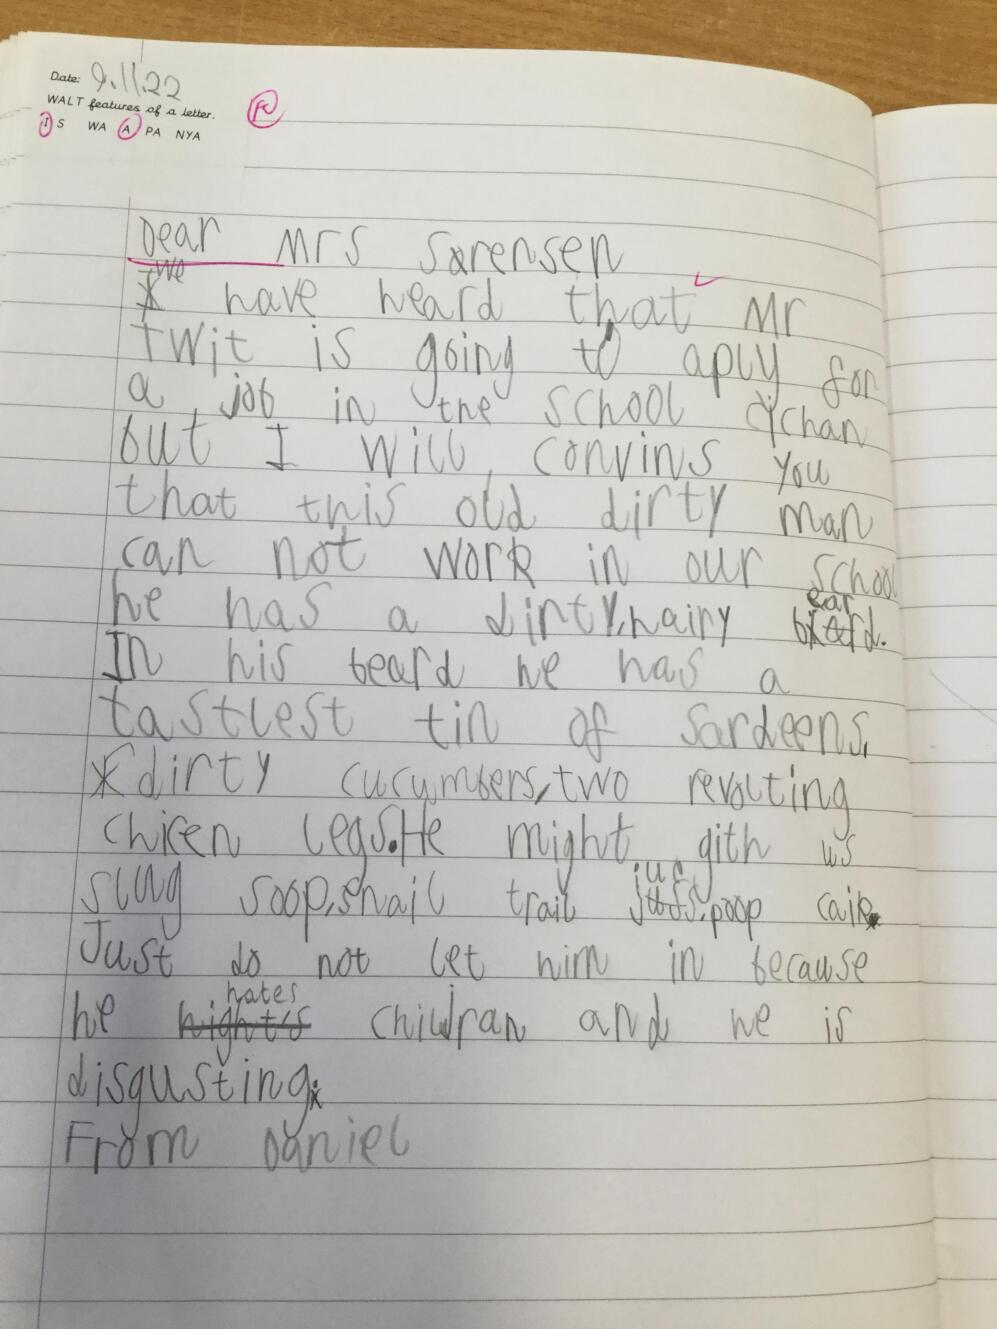 Date: 9.11.22
WALT features of a letter.
I S WA A PA NYA
Dear Mrs Sorensen
we
have heard that Mr
twit is going to aply for
a job in the school cichan
but I will convins you
that this old dirty man
can not work in our school
he has a dirty, hairy beard.
In his beard he has a
tastlest tin of sardeens,
dirty cucumbers, two revolting
chicen legs. He might gith us
slug soop, snail trail jus, poop caik.
Just do not let him in because
he hates childran and he is
disgusting.
From Daniel